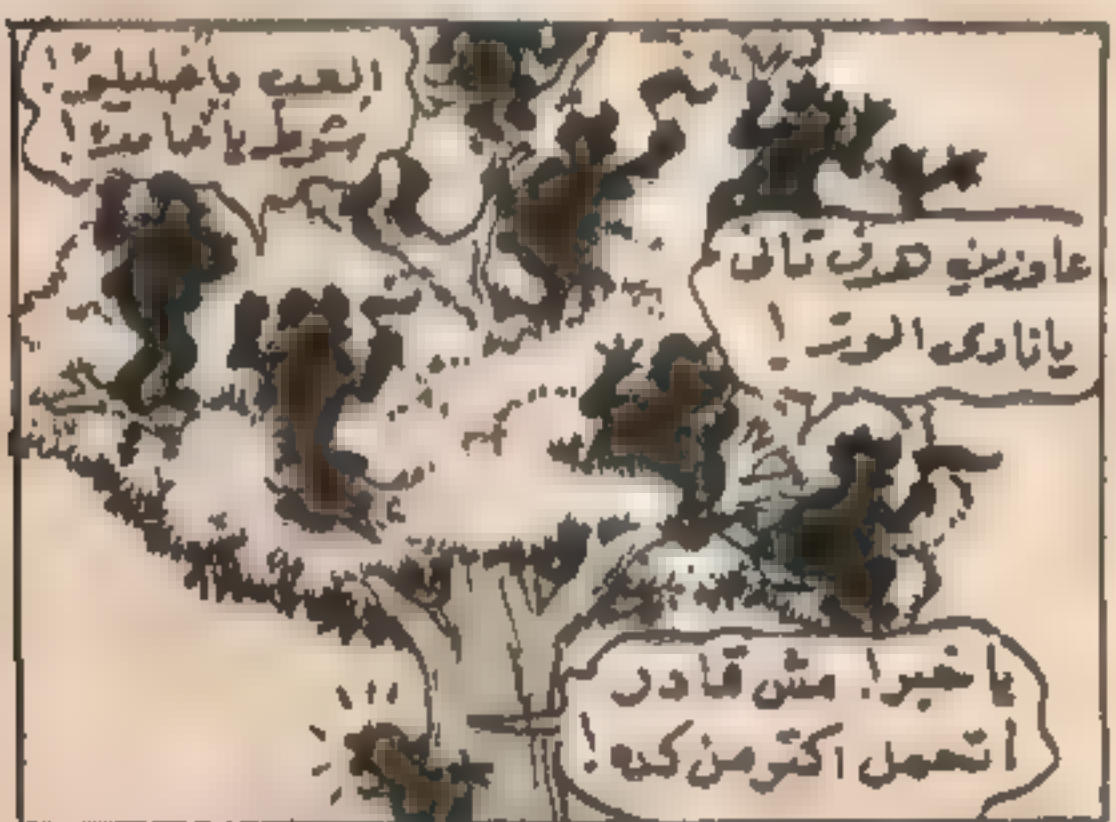 العب يا فليلو !
شوط يا حامد !
عاوزين هدف تانى
يا نادى التوت !
يا خبر ! مش قادر
اتحمل اكتر من كده !